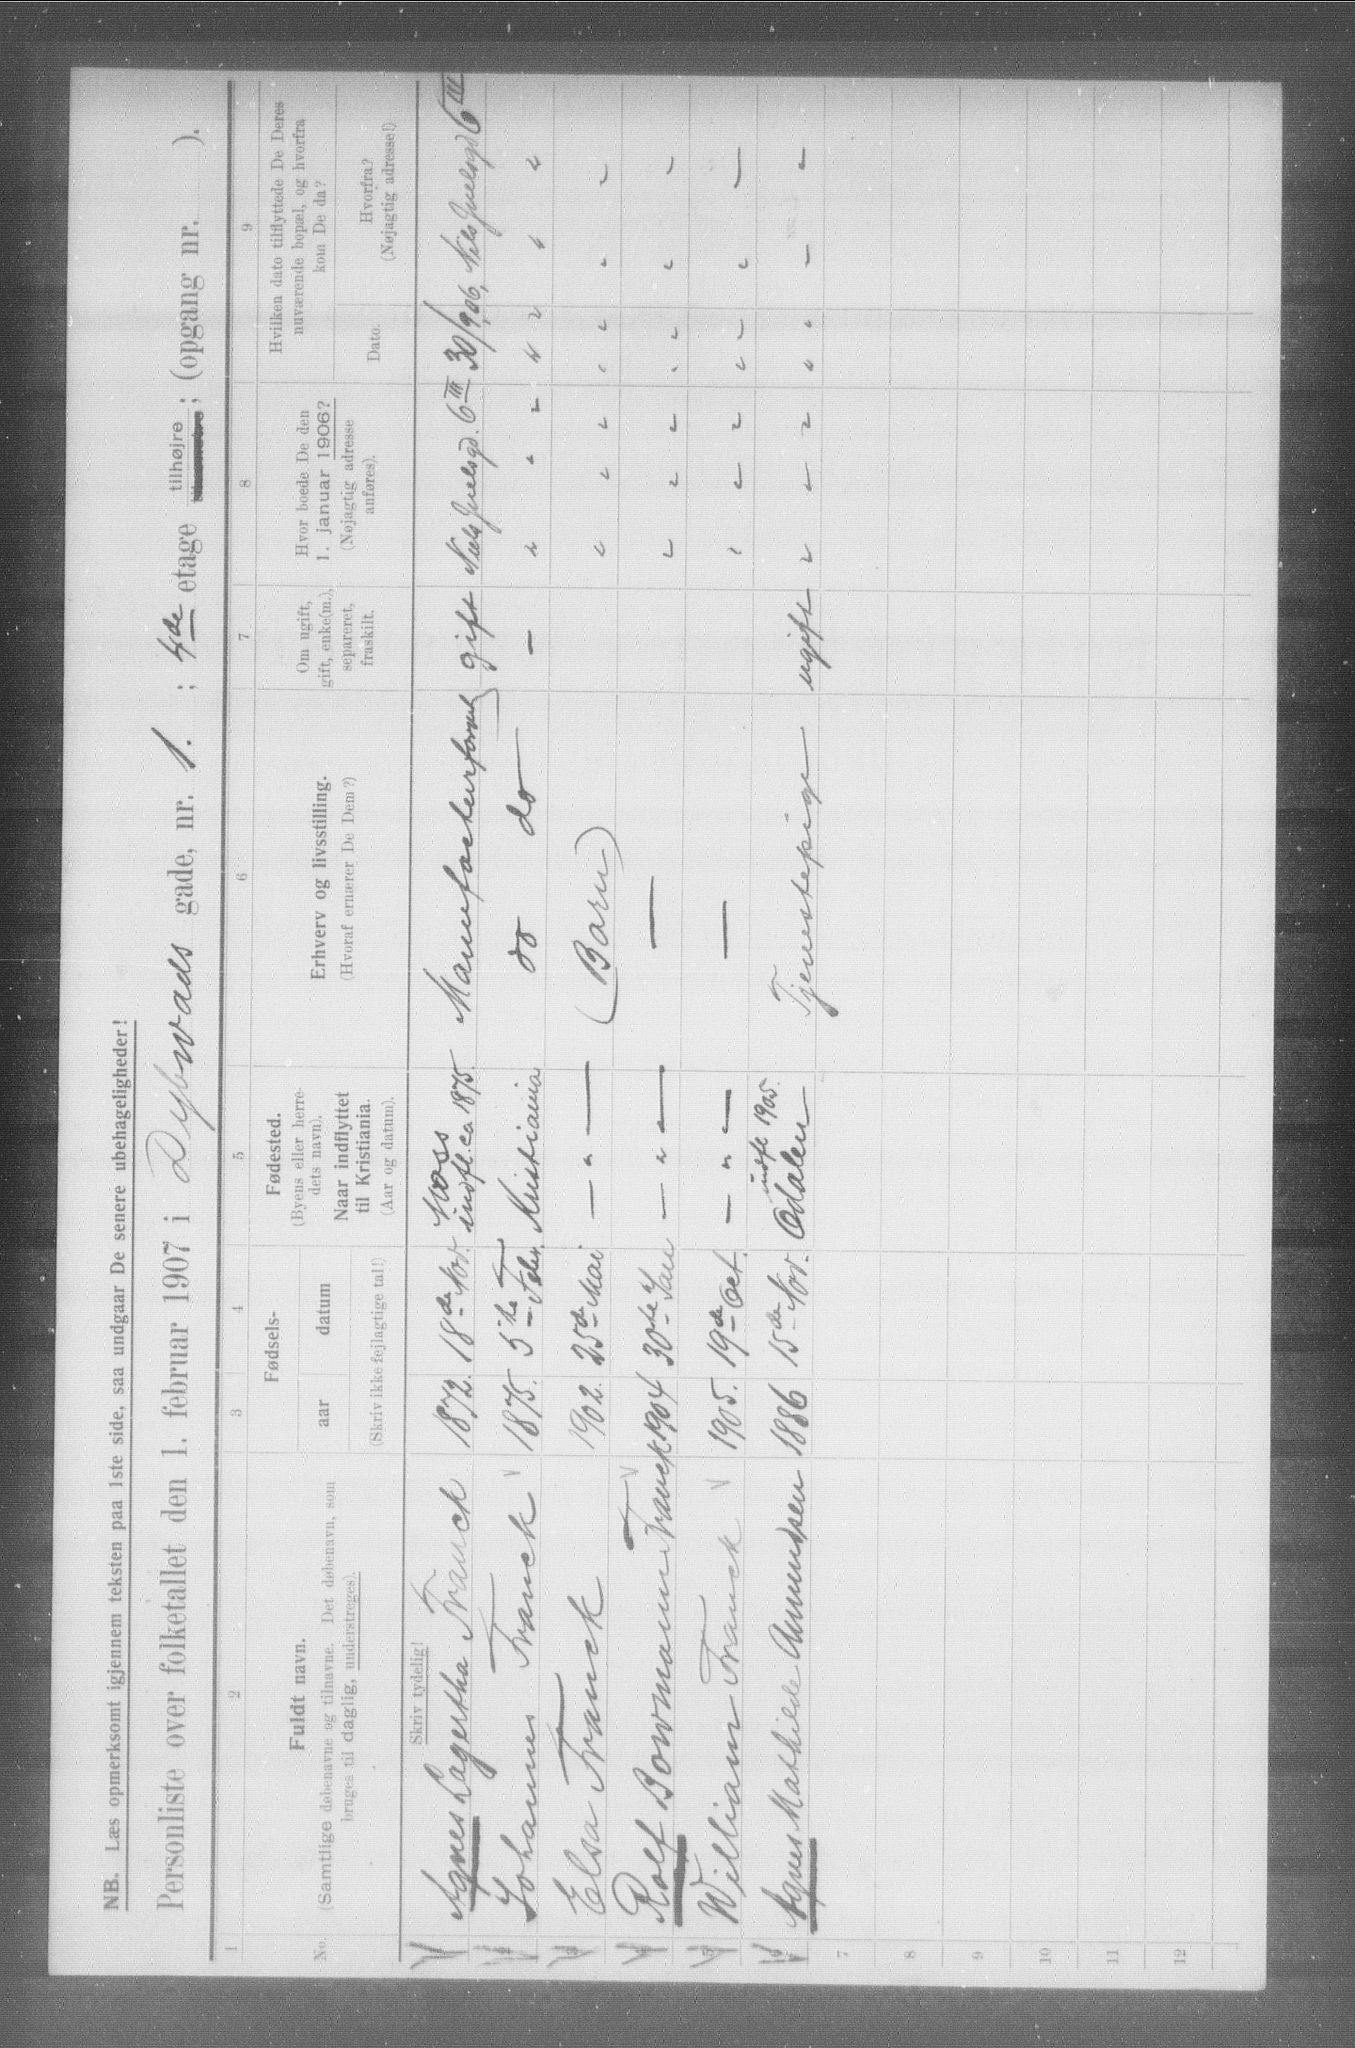 NB. Læs opmerksomt igjennem teksten paa 1ste side, saa undgaar De senere ubehageligheder!
Personliste over folketallet den 1. februar 1907 i Dybwads gade, nr. 1. ; 4de etage tilhøjre ; (opgang nr. ).
1 2 3 4 5 6 7 8 9
No. Fuldt navn. (Samtlige døbenavne og tilnavne. Det døbenavn, som bruges til daglig, understreges).
Fødsels- aar datum (Skriv ikke fejlagtige tal!)
Fødested. (Byens eller herredets navn). Naar indflyttet til Kristiania. (Aar og datum).
Erhverv og livsstilling. (Hvoraf ernærer De Dem?)
Om ugift, gift, enke(m.), separeret, fraskilt.
Hvor boede De den 1. januar 1906? (Nøjagtig adresse anføres).
Hvilken dato tilflyttede De Deres nuværende bopæl, og hvorfra kom De da?
Dato. Hvorfra? (Nøjagtig adresse!)
Skriv tydelig!
Agnes Lagertha Franck 1872. 18de Nov. Voss indfl. ca 1875. gift Niels Juelsgd. 6 III 30/9 06, Niels Juelsgd 6 III
2 Johannes Franck 1875. 5te Febr. Kristiania do do — " " " " " " "
3 Elsa Franck 1902. 25de Mai — " — (Barn) " " " " " " "
4 Rolf Bowmann Franck 1904 30te Jan — " — — " " " " " " "
5 William Franck 1905. 19de Oct. — " — — " " " " — " —
6 Agnes Mathilde Amundsen 1886 15de Nov. Odalen indfl. 1905. Tjenestepige ugift " " " " " — "
7
8
9
10
11
12